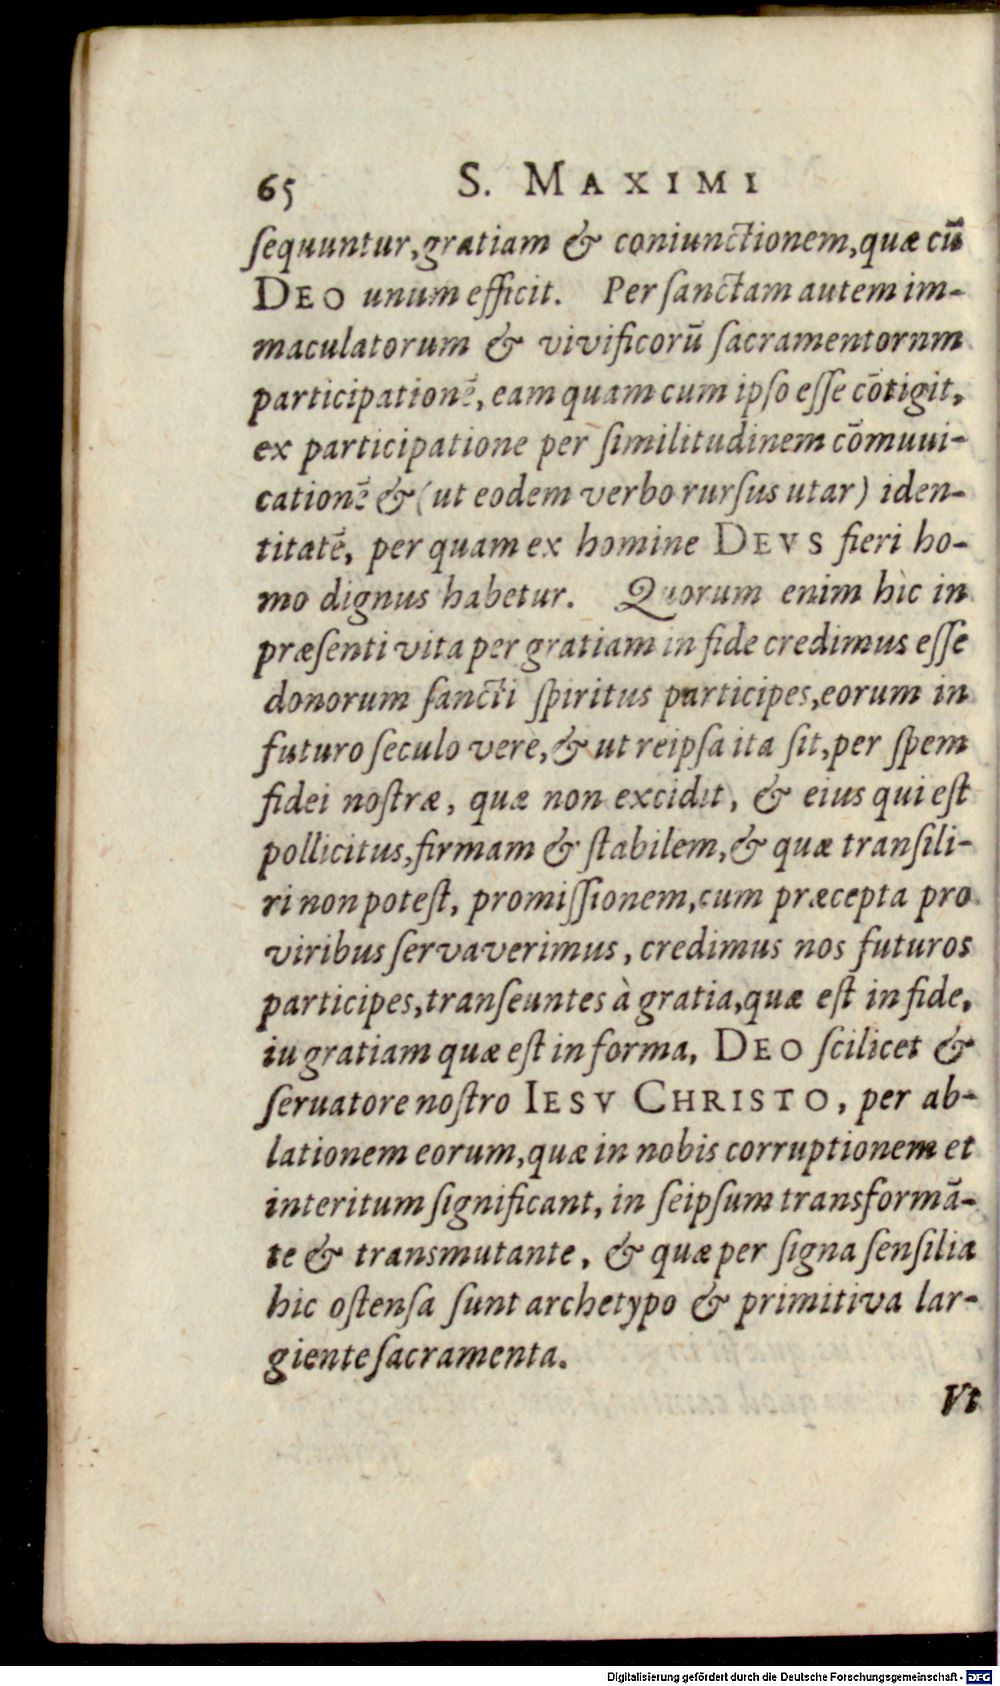 65 S. MAXIMI
ſequuntur, gratiam & coniunctionem, quæ cū
DEO unum efficit. Per ſanctam autem im-
maculatorum & vivificorū ſacramentornm
participationē, eam quam cum ipſo eſſe cōtigit,
ex participatione per ſimilitudinem cōmuui-
cationē & (ut eodem verbo rurſus utar) iden-
titatē, per quam ex homine DEVS fieri ho-
mo dignus habetur. Quorum enim hìc in
præſenti vita per gratiam in fide credimus eſſe
donorum ſancti ſpiritus participes, eorum in
futuro ſeculo vere, & ut reipſa ita ſit, per ſpem
fidei noſtræ, quæ non excidit, & eius qui eſt
pollicitus, firmam & ſtabilem, & quæ tranſili-
ri non poteſt, promiſſionem, cum præcepta pro
viribus ſervaverimus, credimus nos futuros
participes, tranſeuntes à gratia, quæ eſt in fide,
iu gratiam quæ eſt in forma, DEO ſcilicet &
ſeruatore noſtro IESV CHRISTO, per ab-
lationem eorum, quæ in nobis corruptionem et
interitum ſignificant, in ſeipſum transformā-
te & transmutante, & quæ per ſigna ſenſilia
hic oſtenſa ſunt archetypo & primitiva lar-
giente ſacramenta.
Vt
Digitalisierung gefördert durch die Deutsche Forschungsgemeinschaft - DFG